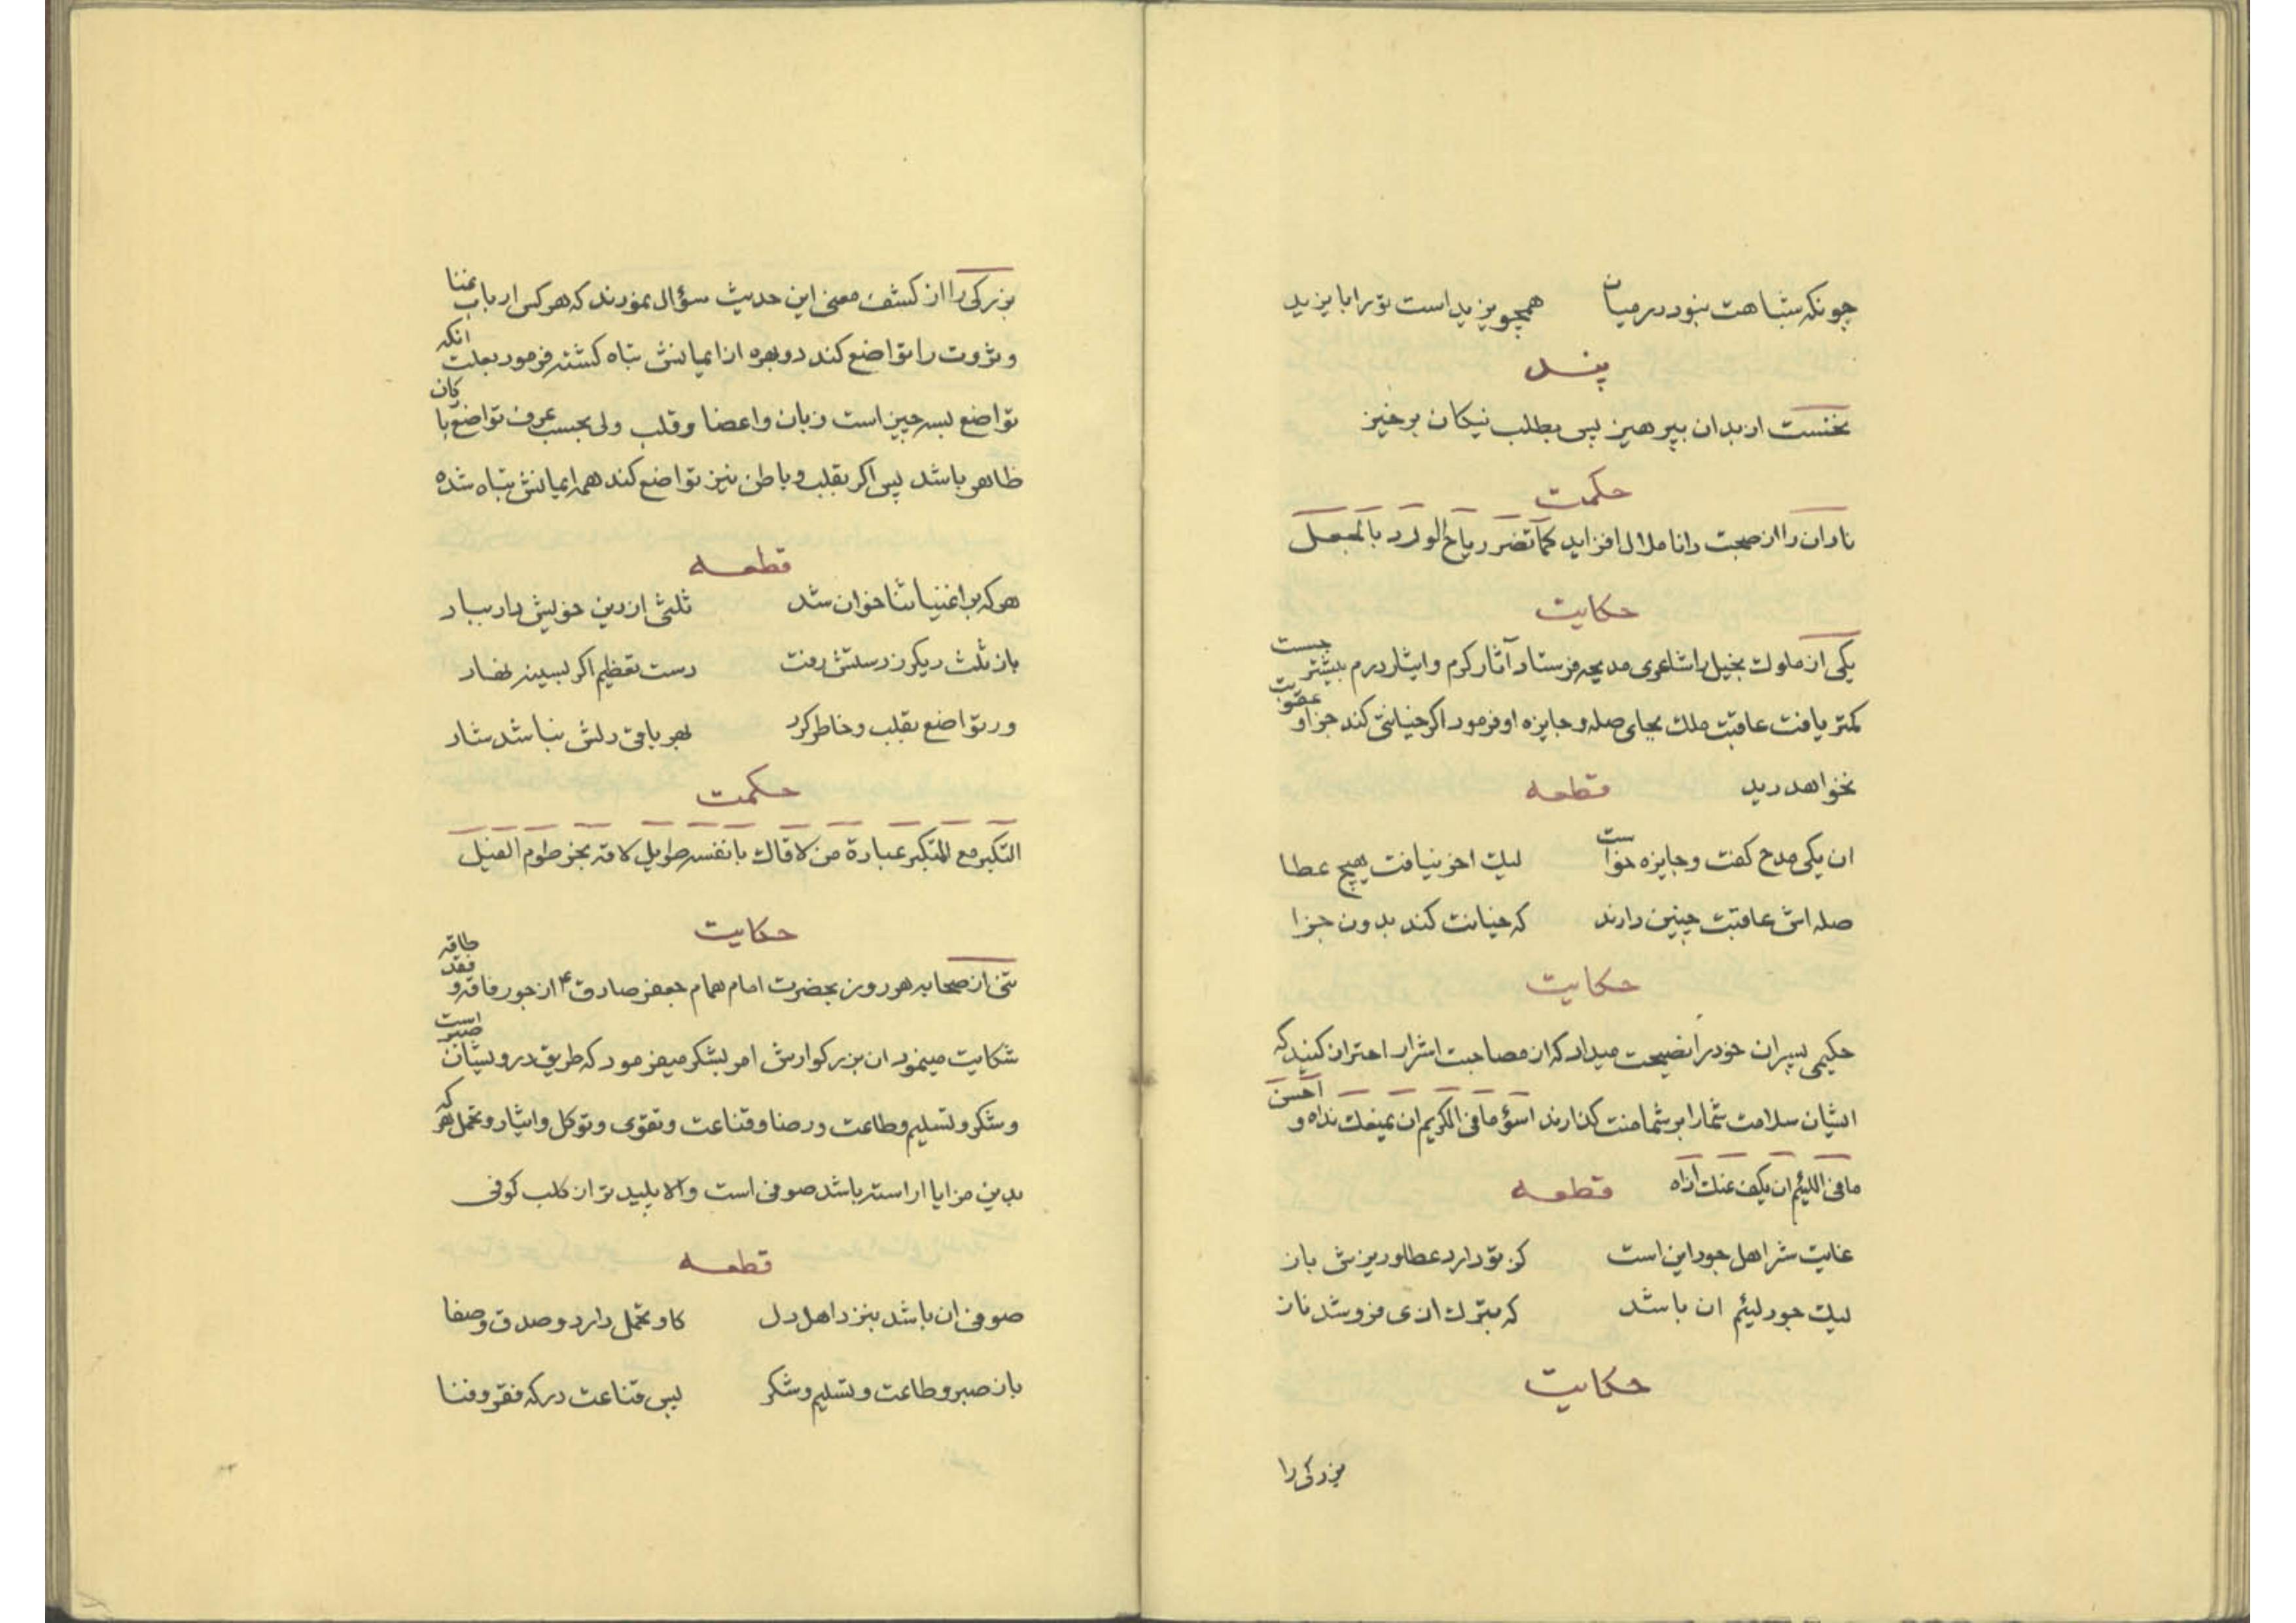 چونکه شباهت نبود در میان همچو یزید است تو را بایزید
پند
نخست از بدان بپرهیز پس بطلب نیکان برخیز
حکمت
نادان را از صحبت دانا ملال افزاید کما تضر ریاح الورد بالجعل
حکایت
یکی از ملوک بخیل را شاعری مدیحه فرستاد آثار کرم و ایثار درم بیشتر جست
کمتر یافت عاقبت ملک بجای صله و جایزه او فرمود اگر خیانتی کند جزا و عقوبت
نخواهد دید قطعه
ان یکی مدح کفت و جایزه خواست لیک اخر نیافت هیچ عطا
صله اش عاقبت چنین دارند که خیانت کند بدون جزا
حکایت
حکیمی پسران خود را نصیحت میداد که از مصاحبت اشرار احتراز کنید که
ایشان سلامت شما را بر شما منت کذارند اسؤ ما فی الکریم ان یمنعک نداه و احسن
ما فی اللئیم ان یکف عنک اذاه قطعه
غایت شر اهل جود این است کز تو دارد عطا و ریزش باز
لیک جود لئیم ان باشد که بترک اذی فروشد ناز
حکایت
بزرکی را
بزرکی را از کشف معنی این حدیث سؤال نمودند که هر کس ارباب غنا
و ثروت را تواضع کند دو بهره از ایمانش تباه کشته فرمود بعلت انکه
تواضع بسه چیز است زبان و اعضا و قلب ولی بحسب عرف تواضع با کان
ظاهر باشد پس اکر بقلب و باطن نیز تواضع کند همه ایمانش تباه شده
قطعه
هر که بر اغنیا ثنا خوان شد ثلثی از دین خویش داد بباد
باز ثلث دیکر ز دستش رفت دست تعظیم اکر بسینه نهاد
ور تواضع بقلب و خاطر کرد بهر باقی دلش نباشد شاد
حکمت
التکبر مع المتکبر عبارة من لاقاک بانفسه طویل لاقه بخرطوم الفیل
حکایت
تنی از صحابه هر روز بحضرت امام همام جعفر صادق ع از جور فاقه و فقد طاقه
شکایت مینمود ان بزرکوارش امر بشکر میفرمود که طریق درویشان صبر است
و شکر و تسلیم و طاعت و رضا و قناعت و تقوی و توکل و ایثار و تحمل هر که
بدین مزایا اراسته باشد صوفی است والا پلیدتر از کلب کوفی
قطعه
صوفی ان باشد بنزد اهل دل کاو تحمل دارد و صدق و صفا
باز صبر و طاعت و تسلیم و شکر پس قناعت درکه فقر و فنا